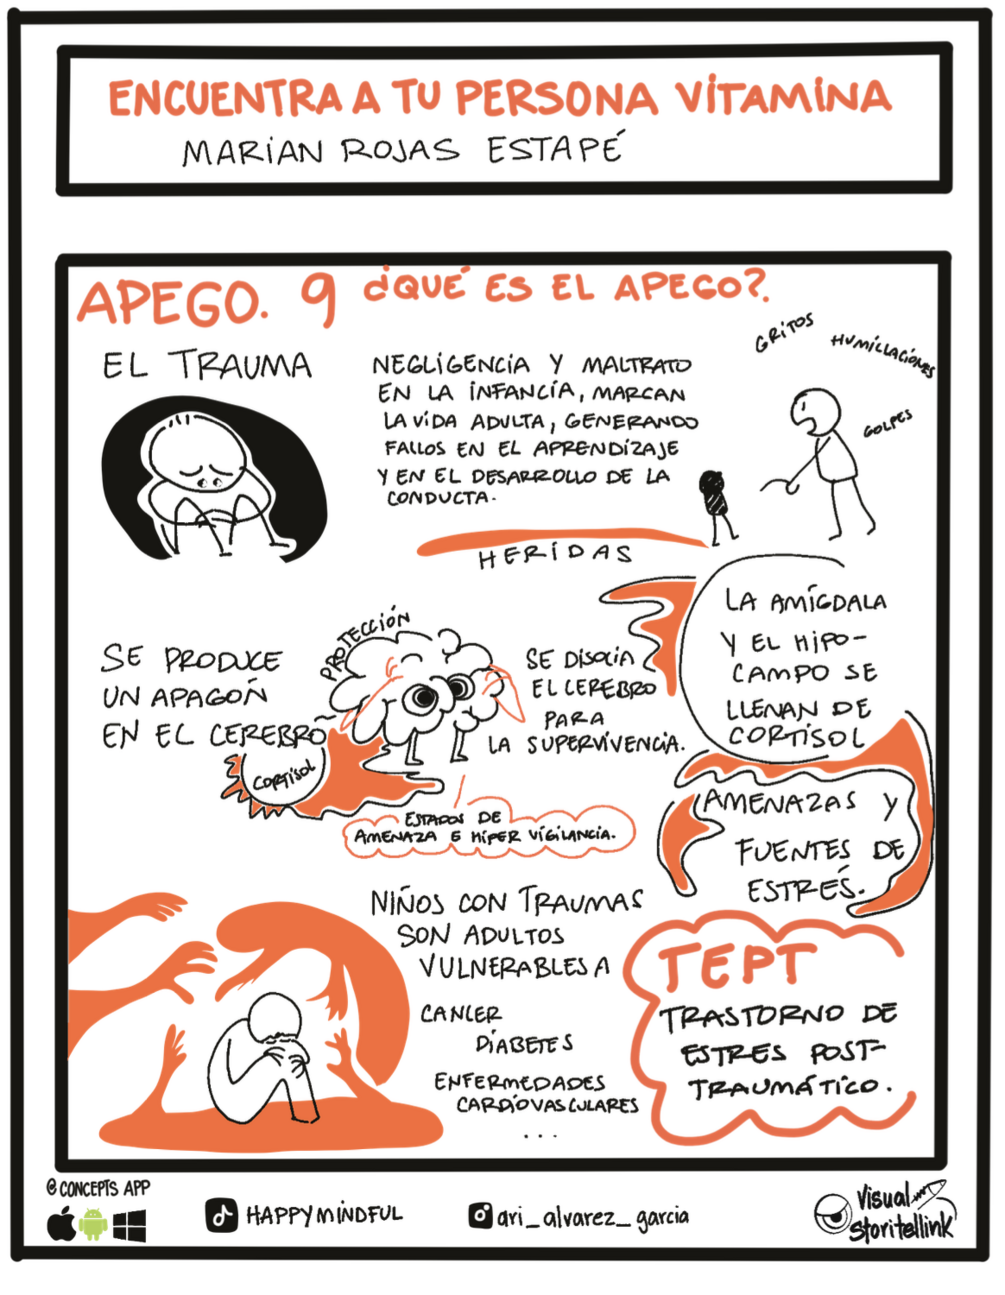 ENCUENTRA A TU PERSONA VITAMINA
MARIAN ROJAS ESTAPÉ
APEGO. 9 ¿QUÉ ES EL APEGO?.
EL TRAUMA
NEGLIGENCIA Y MALTRATO
EN LA INFANCIA, MARCAN
LA VIDA ADULTA, GENERANDO
FALLOS EN EL APRENDIZAJE
Y EN EL DESARROLLO DE LA
CONDUCTA.
GRITOS
HUMILLACIONES
GOLPES
HERIDAS
SE PRODUCE
UN APAGON
EN EL CEREBRO
CORTISOL
PROTECCIÓN
SE DISOCIA
EL CEREBRO
PARA
LA SUPERVIVENCIA.
ESTADOS DE
AMENAZA E HIPER VIGILANCIA.
LA AMIGDALA
Y EL HIPO-
CAMPO SE
LLENAN DE
CORTISOL
AMENAZAS Y
FUENTES DE
ESTRÉS.
NIÑOS CON TRAUMAS
SON ADULTOS
VULNERABLES A
CANCER
DIABETES
ENFERMEDADES
CARDIOVASCULARES
...
TEPT
TRASTORNO DE
ESTRES POST-
TRAUMÁTICO.
@CONCEPTS APP
HAPPYMINDFUL
ari_alvarez_garcia
Visual
Storitellink